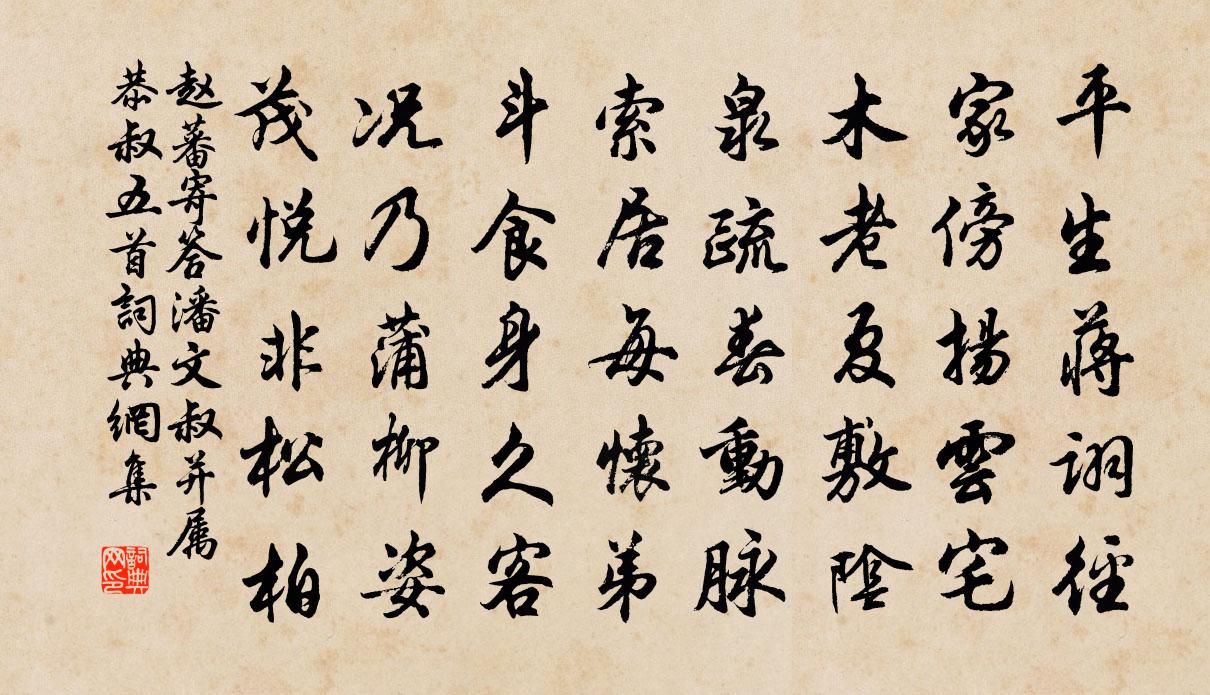 平生蔣詡徑
家傍揚雲宅
木老夏敷陰
泉疏春動脉
索居每懷弟
斗食身久客
況乃蒲柳姿
茂悅非松柏
赵蕃寄答潘文叔并属
恭叔五首詞典網集
詞典网印